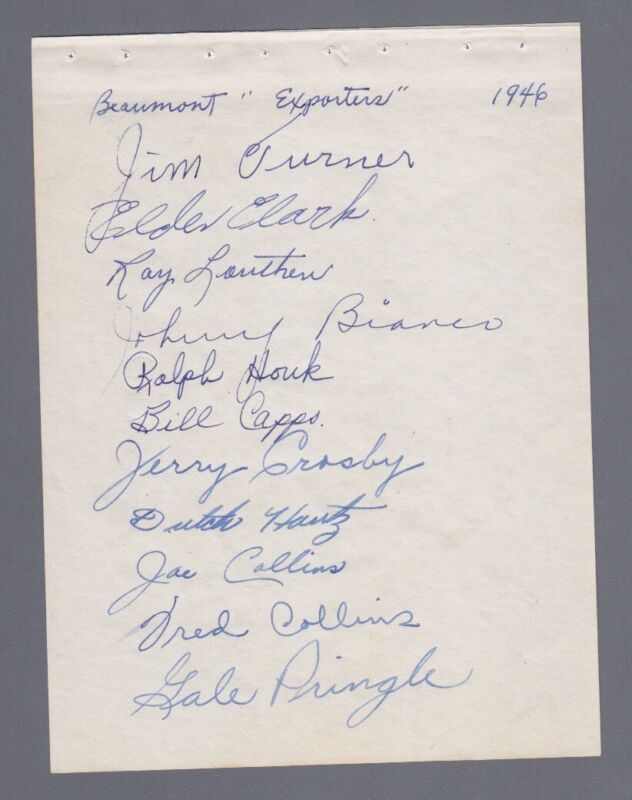 Beaumont "Exporters" 1946
Jim Turner
Elder Clark
Ray Louthen
Johnny Bianco
Ralph Houk
Bill Capps.
Jerry Crosby
Dutch Hantz
Joe Collins
Fred Collins
Gale Pringle